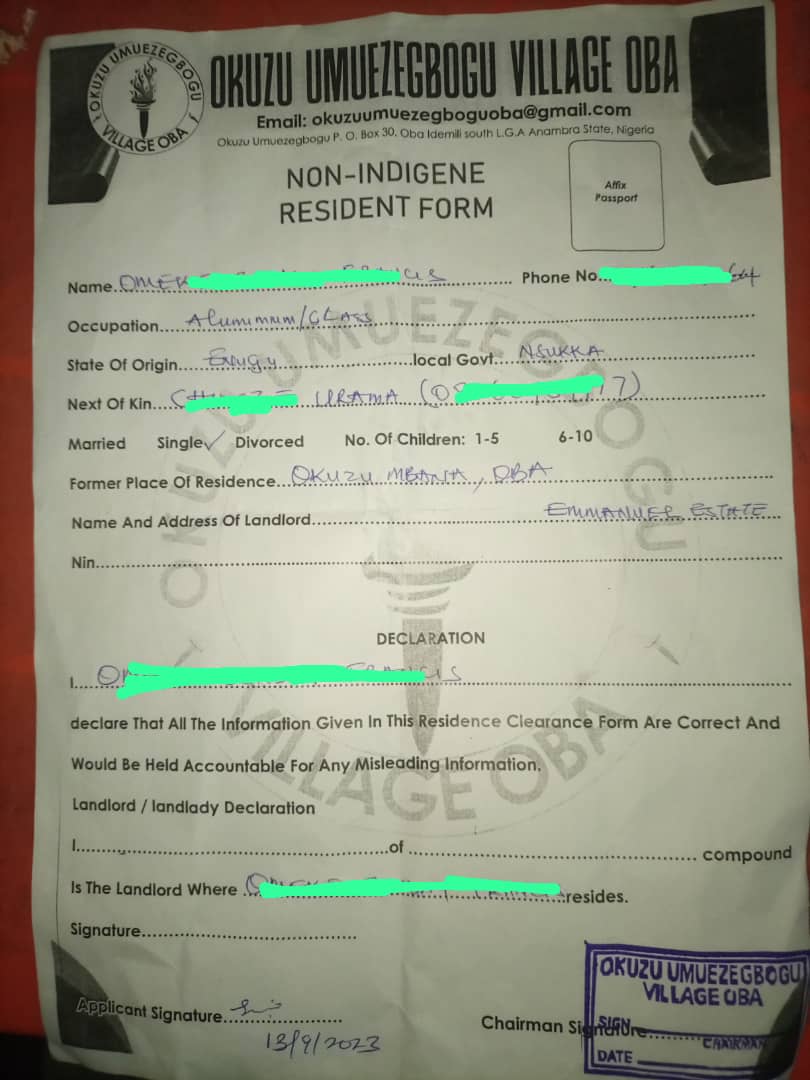 OKUZU UMUEZEGBOGU
VILLAGE OBA
OKUZU UMUEZEGBOGU VILLAGE OBA
Email: okuzuumuezegboguoba@gmail.com
Okuzu Umuezegbogu P. O. Box 30, Oba Idemili south L.G.A Anambra State, Nigeria
NON-INDIGENE
RESIDENT FORM
Affix
Passport
Name Phone No
Occupation Aluminum/GLASS
State Of Origin Enugu local Govt. NSUKKA
Next Of Kin
Married Single ✓ Divorced No. Of Children: 1-5 6-10
Former Place Of Residence OKUZU MBANA, OBA
Name And Address Of Landlord EMMANUEL ESTATE
Nin
DECLARATION
I
declare That All The Information Given In This Residence Clearance Form Are Correct And
Would Be Held Accountable For Any Misleading Information.
Landlord / landlady Declaration
I of compound
Is The Landlord Where resides.
Signature
Applicant Signature
13/9/2023
Chairman Signature
OKUZU UMUEZEGBOGU
VILLAGE OBA
SIGN
CHAIRMAN
DATE
OKUZU UMUEZEGBOGU
VILLAGE OBA